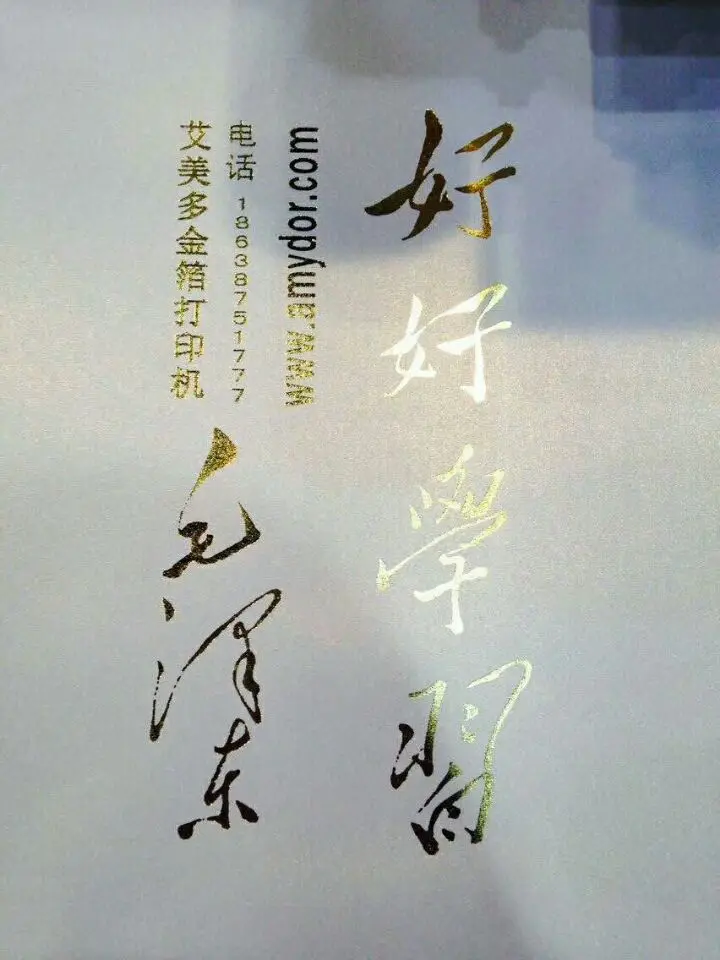 好好學習
www.amydor.com
电话 18638751777
艾美多金箔打印机
毛泽东